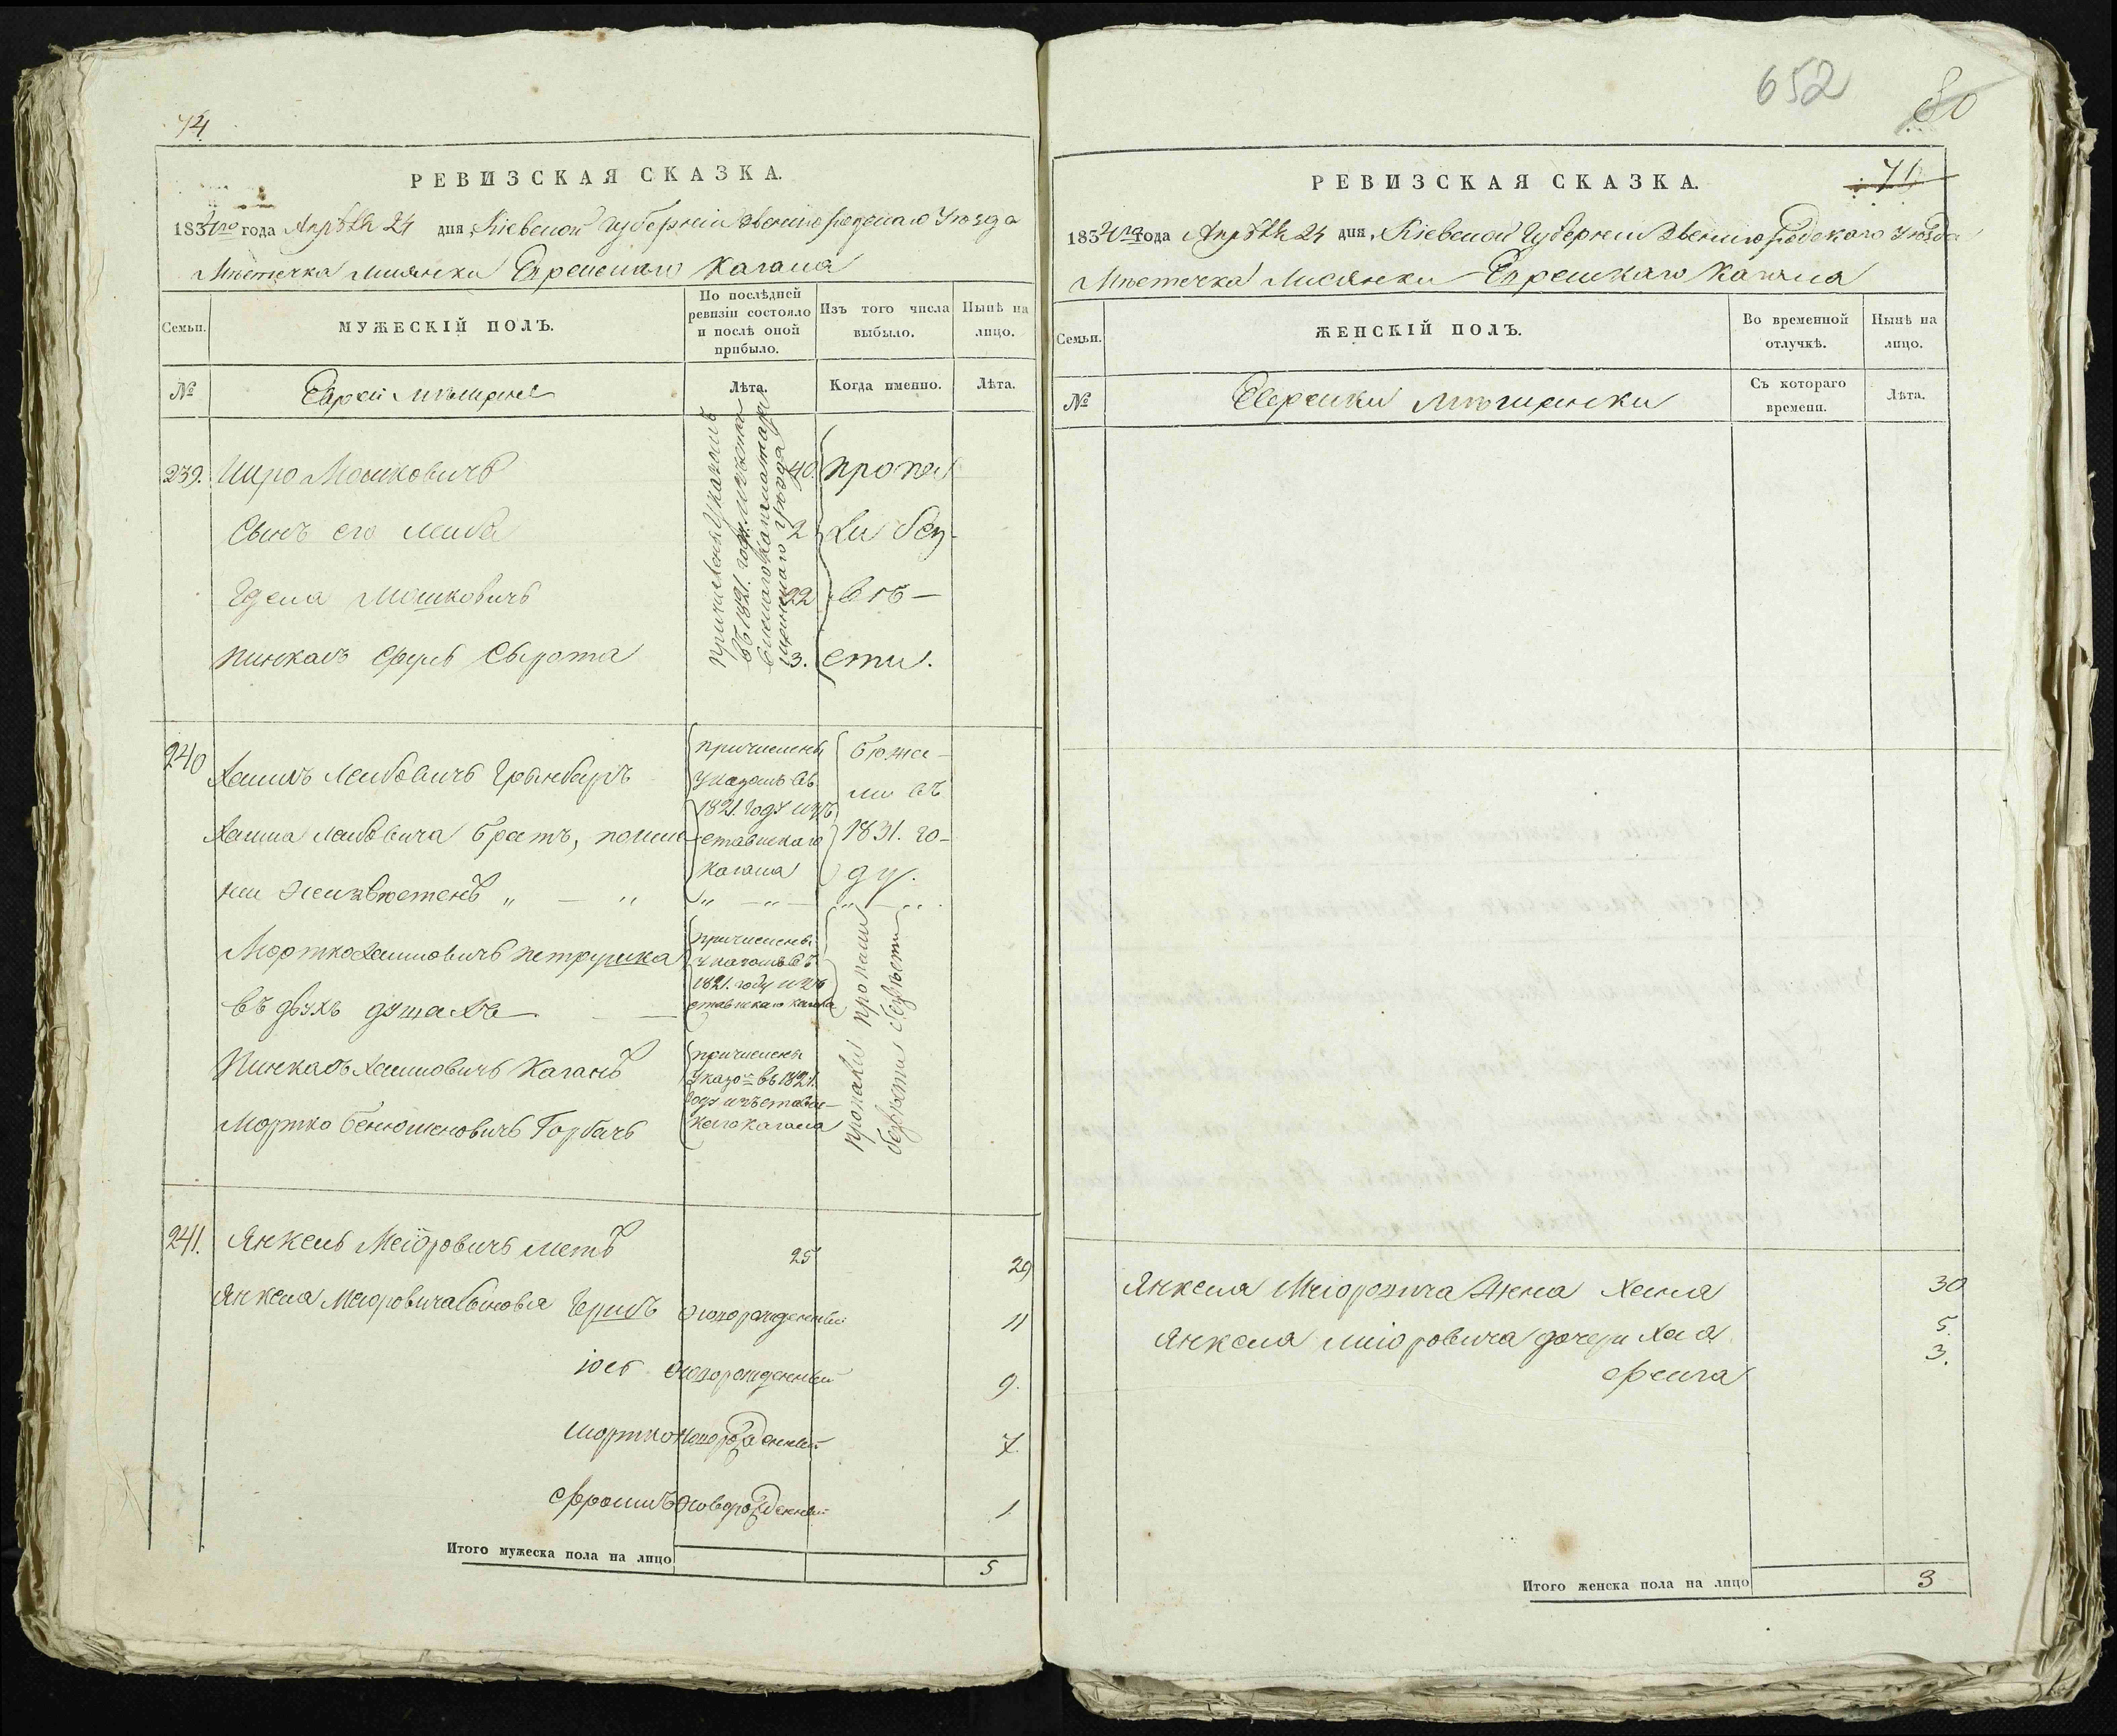 74
РЕВИЗСКАЯ СКАЗКА.
1834го года Апрѣля 24 дня, Кіевской Губерніи Звенигородскаго Уѣзда
Мѣстечка Лисянки Еврейскаго Кагала
Семьи.
МУЖЕСКІЙ ПОЛЪ.
По послѣдней
ревизіи состояло
и послѣ оной
прибыло.
Изъ того числа
выбыло.
Нынѣ на
лицо.
№
Евреи мѣщане
Лѣта.
Когда именно.
Лѣта.
239. Мошковичъ 40. пропа
Сынъ его Лейба 2 ли без
Мошковичъ 22 вѣ-
Пинкасъ Сырота 3. сти.
причислены Указомъ
въ 1821. году
240
Хаимъ Лейбовичъ
Хаима Лейбовича братъ, по
ни неизвѣстенъ „ — „
причислены
Указомъ въ
1821. году изъ
ставискаго
Кагала
бѣжа-
ли въ
1831. го-
ду.
Мортко Хаимовичъ Петрушка
въ двухъ душахъ
причислены
указомъ въ
1821. году изъ
ставискаго кагала
пропали
безвѣсти
Пинкасъ Хаимовичъ Каганъ
Мортко Бенюминовичъ Горбачъ
причислены
Указомъ въ 1821.
году изъ ставис-
каго Кагала
пропали
безвѣсти
241. Янкель Меіоровичъ 25 29
Янкеля Меіоровича сыновья Гершъ новорожденный 11
Іось новорожденный 9.
Мортко новорожденный 7.
Фроимъ новорожденный 1.
Итого мужеска пола на лицо 5
652
80
74
РЕВИЗСКАЯ СКАЗКА.
1834го года Апрѣля 24 дня, Кіевской Губерніи Звенигородскаго Уѣзда
Мѣстечка Лисянки Еврейскаго Кагала
Семьи.
ЖЕНСКІЙ ПОЛЪ.
Во временной
отлучкѣ.
Нынѣ на
лицо.
№
Еврейки Мѣщанки
Съ котораго
времени.
Лѣта.
Янкеля Меіоровича Жена Хана 30
Янкеля Меіоровича дочери Хая 5.
Фейга 3.
Итого женска пола на лицо 3